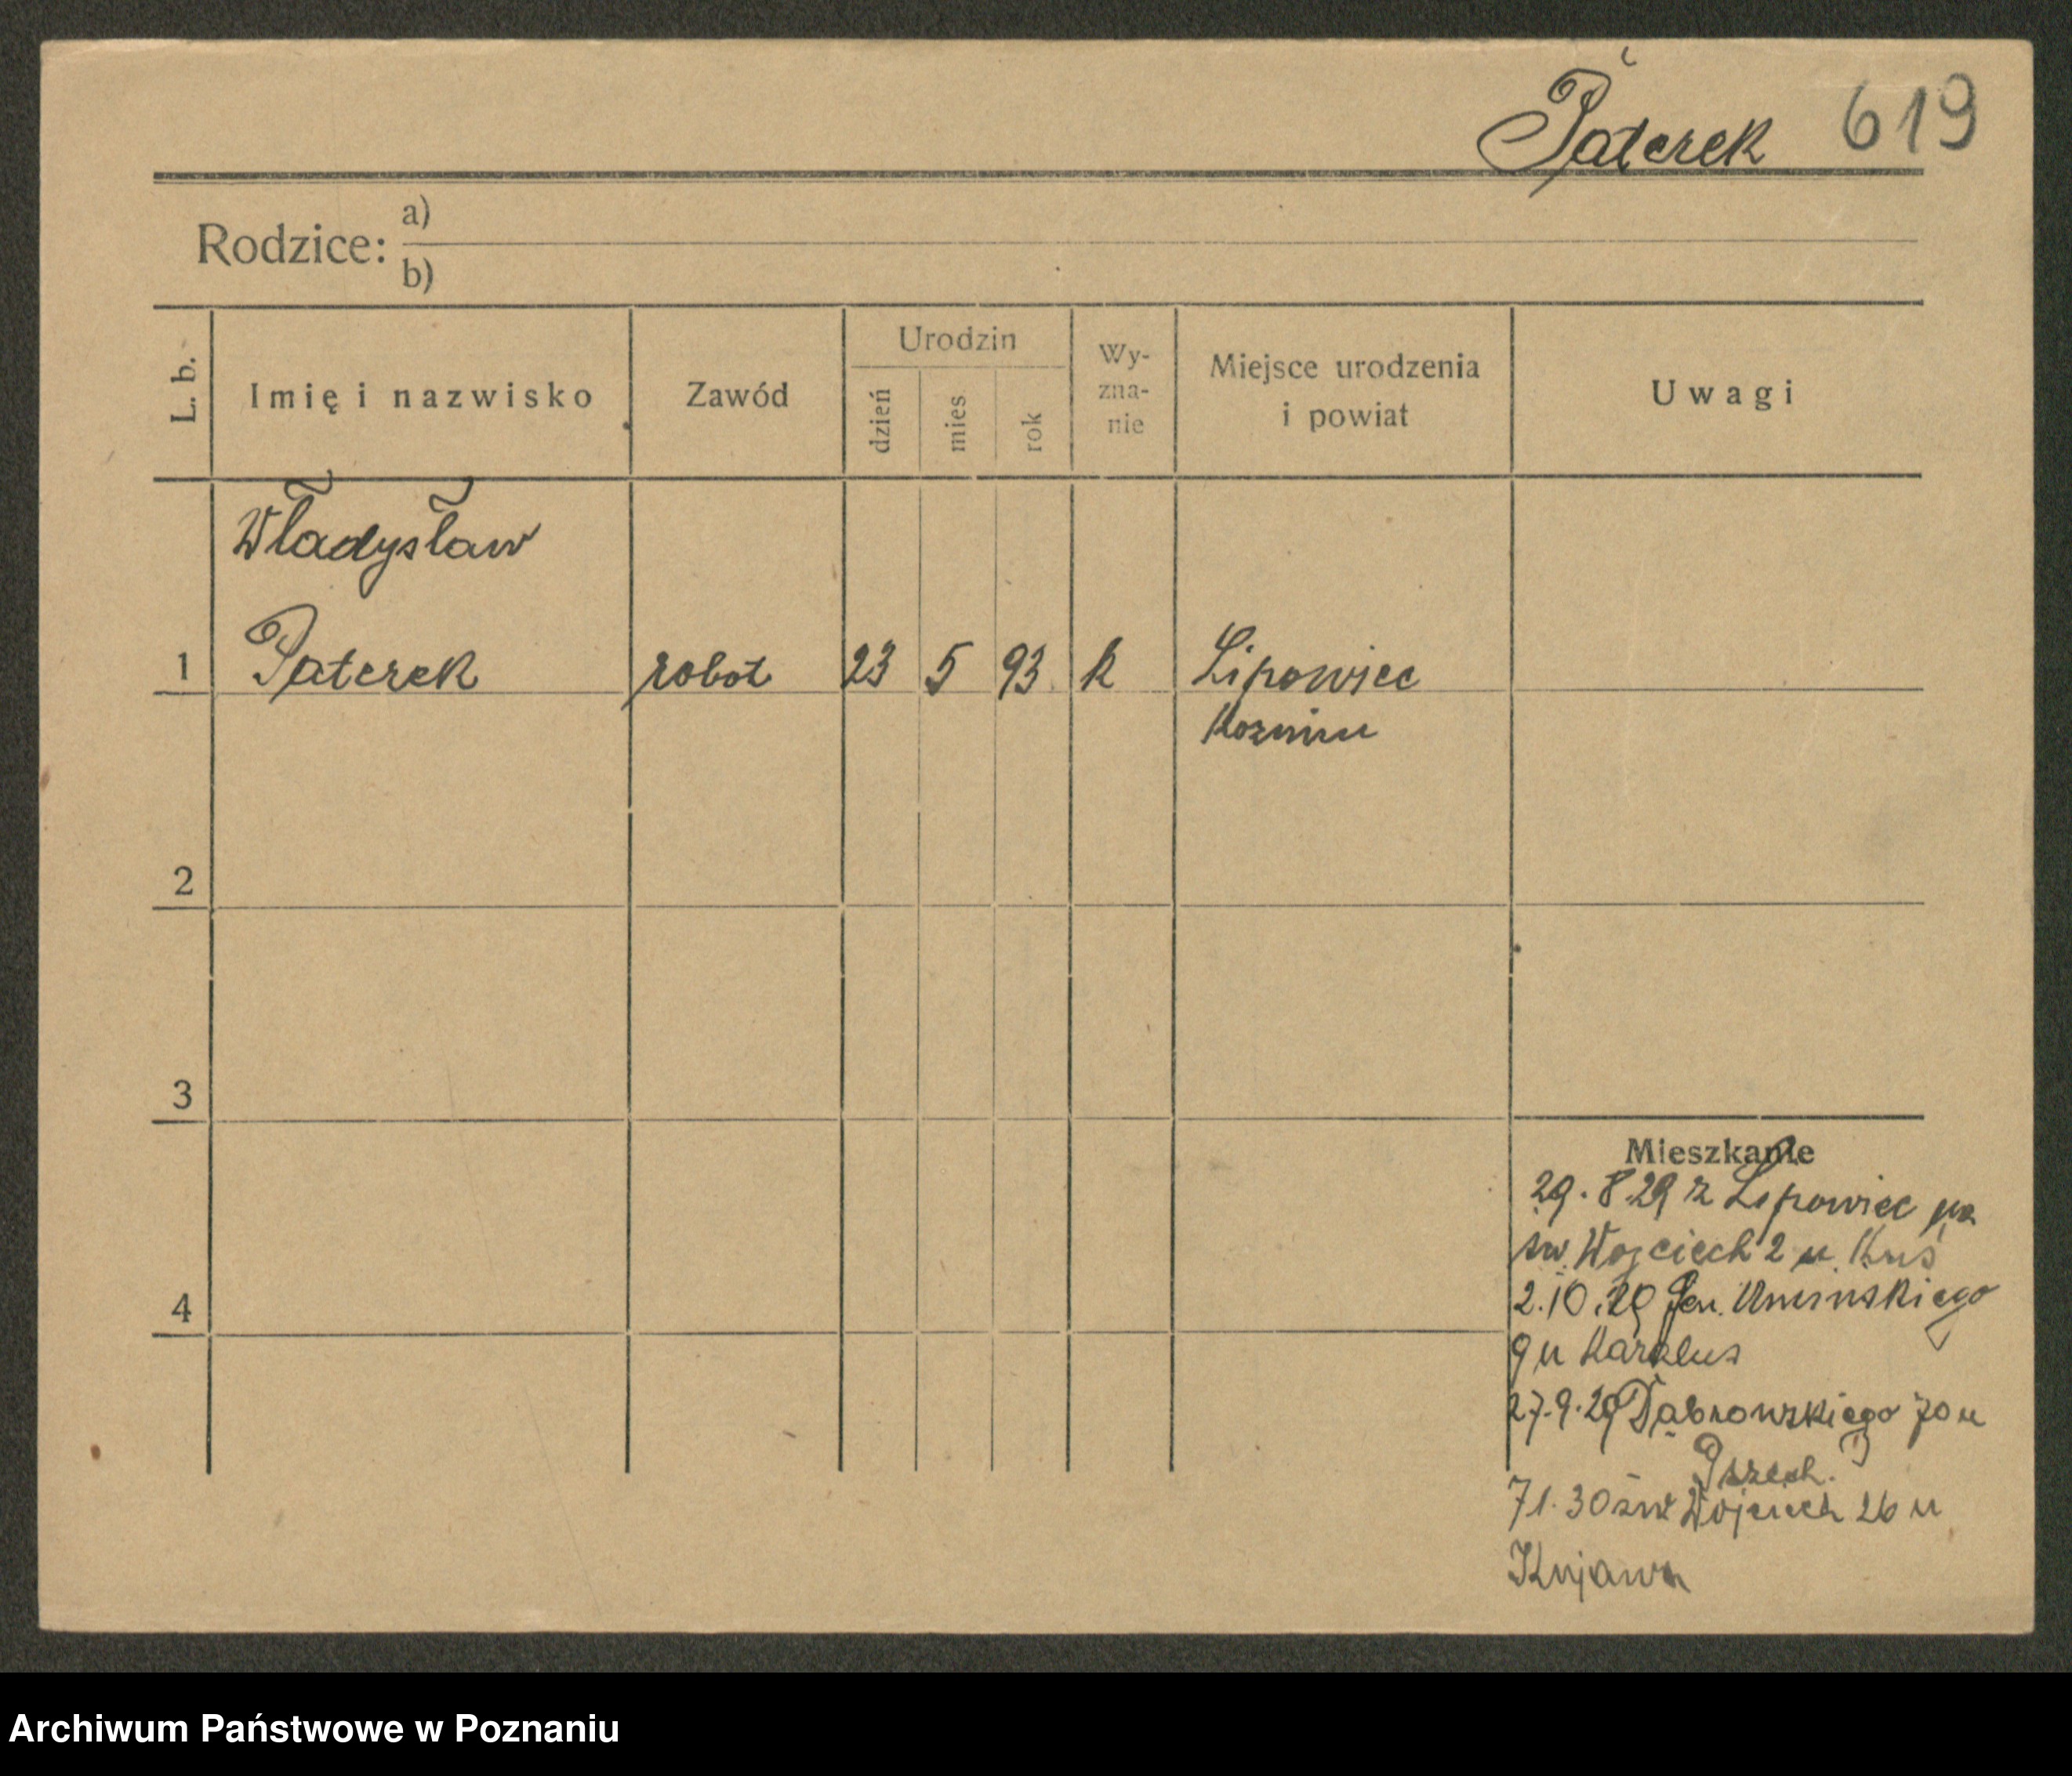 Paterek 619
Rodzice: a)
b)
L. b. Imię i nazwisko Zawód Urodzin dzień mies rok Wy-zna-nie Miejsce urodzenia i powiat Uwagi
Władysław
1 Paterek robot 23 5 93 k Lipowiec
Kozmin
2
3
Mieszkanie
29. 8 29 z Lipowiec
św. Wojciech 2 u. Kuś
4
2.10.29 Gen. Uminskiego
9 u Karolus
27.9.29 Dąbrowskiego 70 u
71.30 św Wojciech 26 u
Kujawa
Archiwum Państwowe w Poznaniu